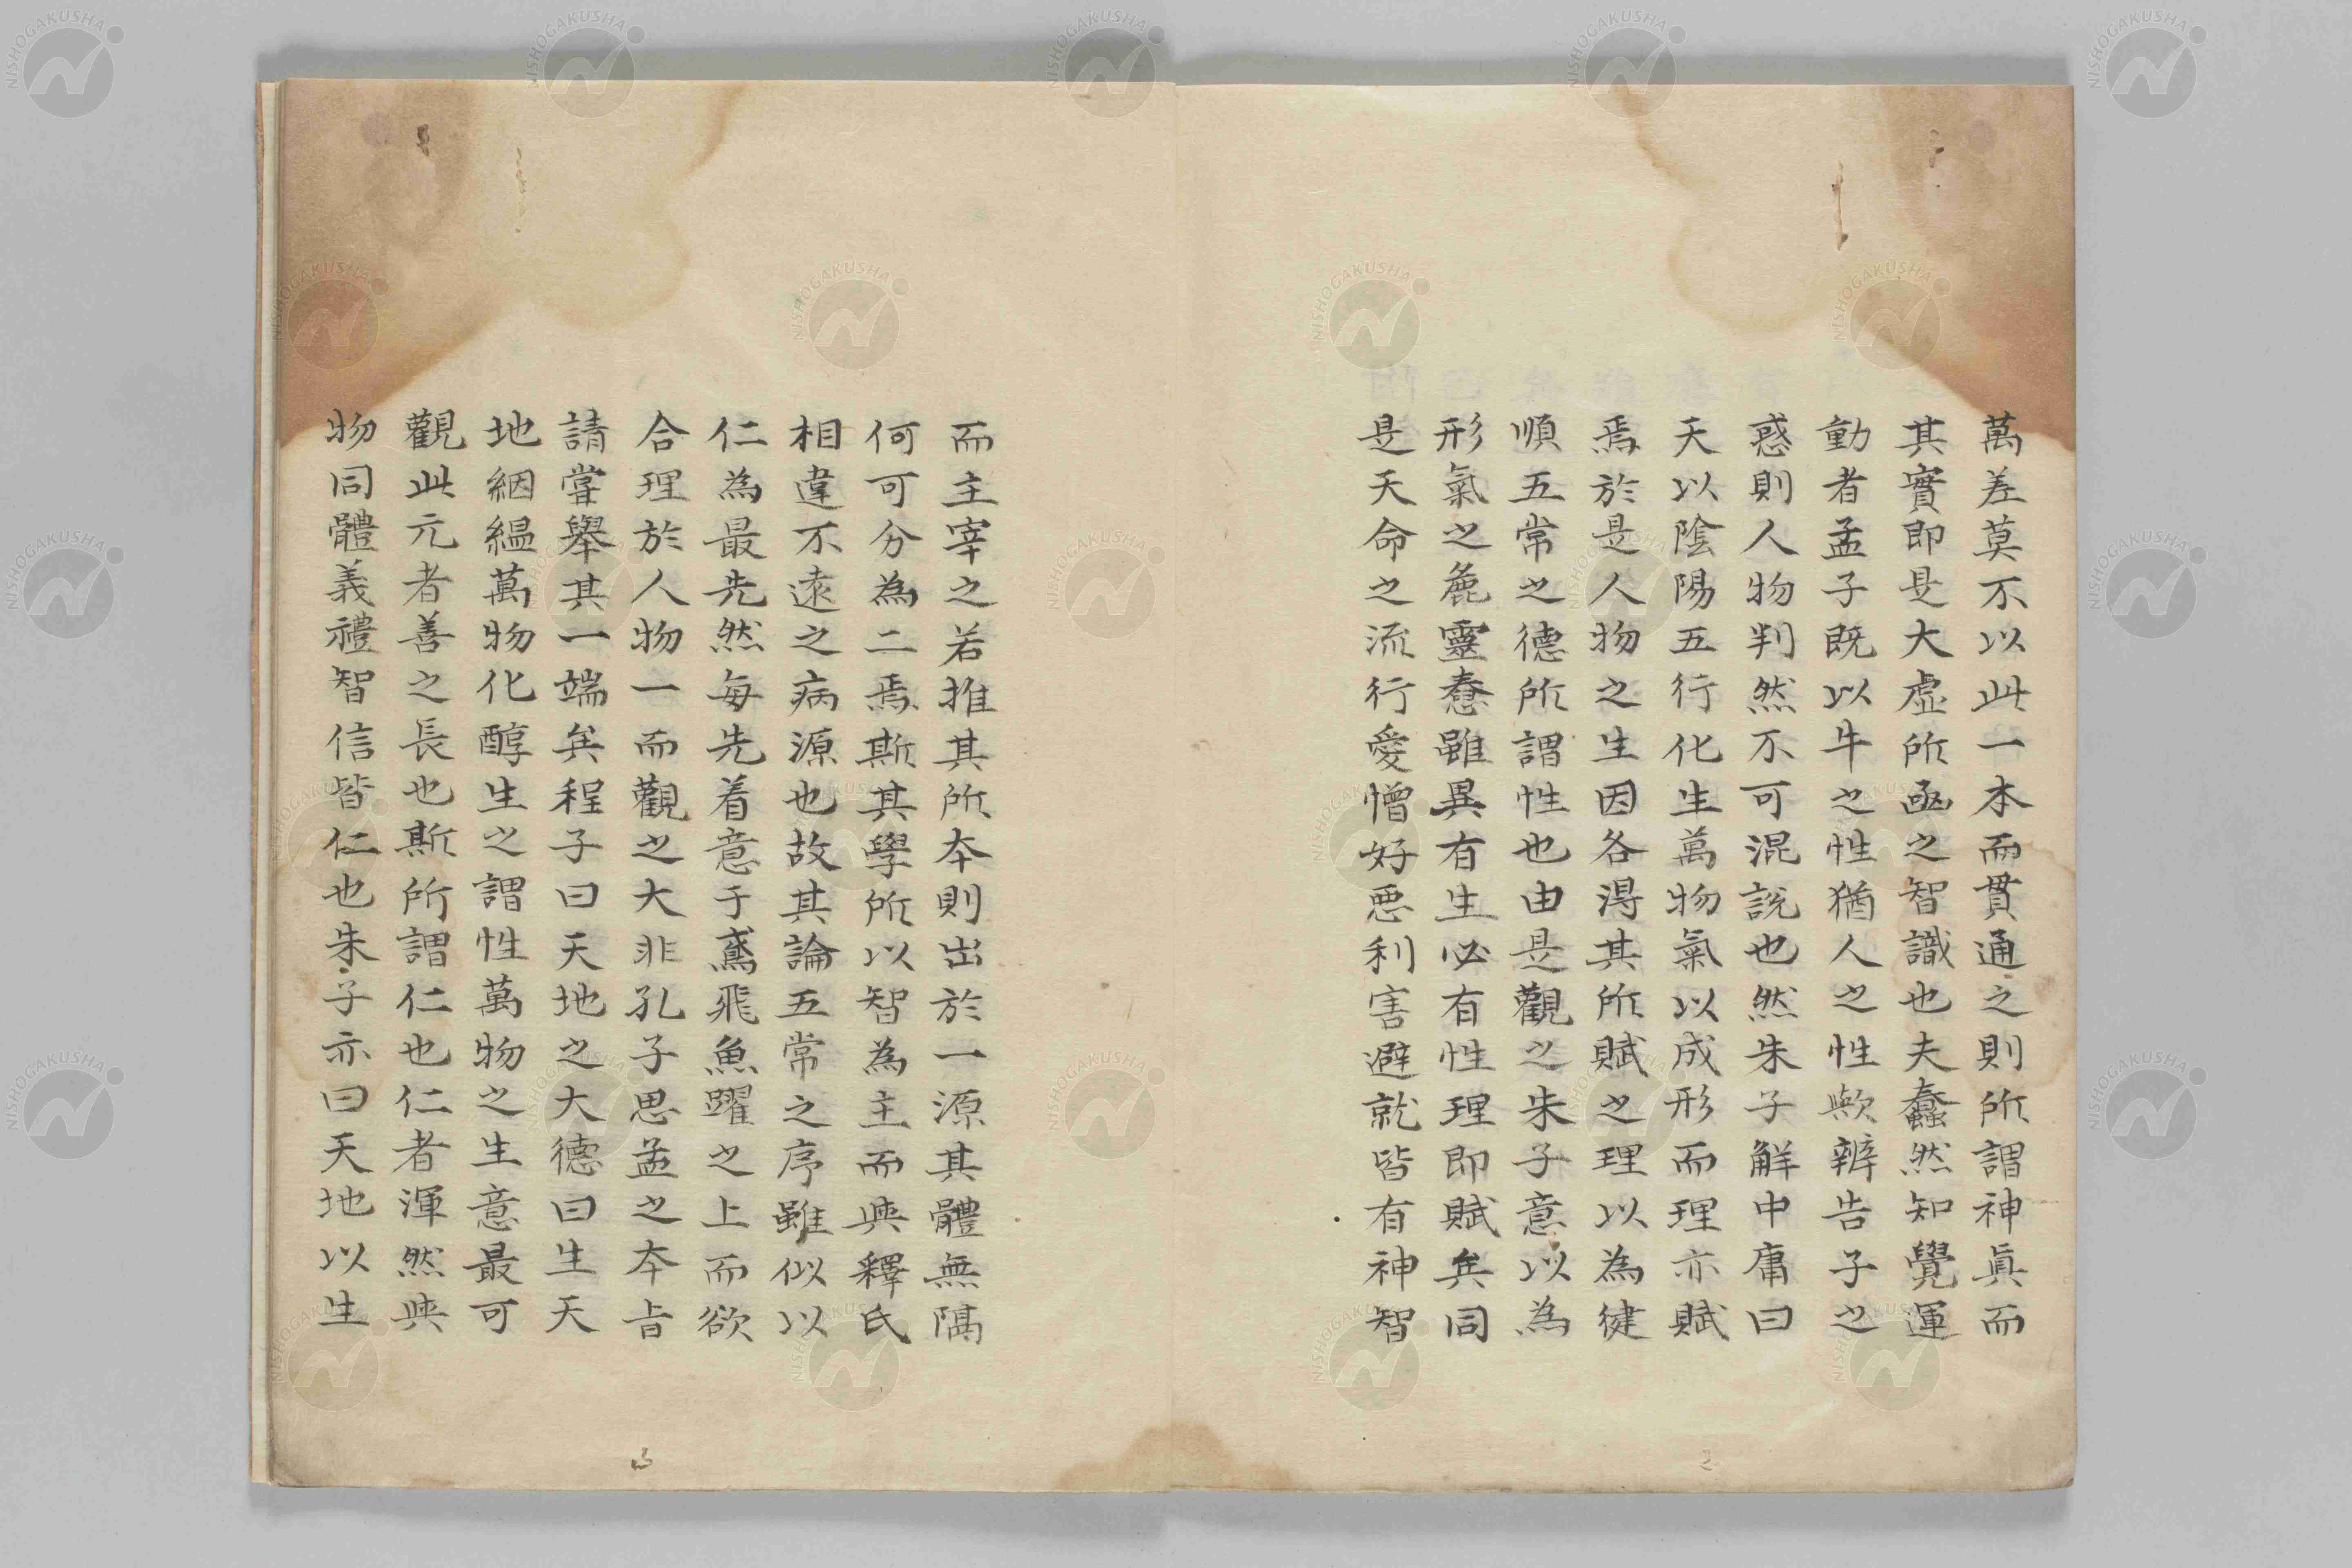 萬差莫不以此一本而貫通之則所謂神眞而
其實即是大虛所凾之智識也夫蠢然知覺運
動者孟子既以牛之性猶人之性歟辨告子之
惑則人物判然不可混說也然朱子解中庸曰
天以陰陽五行化生萬物氣以成形而理亦賦
焉於是人物之生因各淂其所賦之理以為健
順五常之德所謂性也由是觀之朱子意以為
形氣之麁靈蠢雖異有生必有性理即賦矣同
是天命之流行愛憎好惡利害避就皆有神智
而主宰之若推其所夲則出於一源其體無隔
何可分為二焉斯其學所以智為主而與釋氏
相違不遠之病源也故其論五常之序雖似以
仁為最先然每先着意于鳶飛魚躍之上而欲
合理於人物一而觀之大非孔子思孟之夲旨
請嘗舉其一端矣程子曰天地之大德曰生天
地絪縕萬物化醇生之謂性萬物之生意最可
觀此元者善之長也斯所謂仁也仁者渾然與
物同體義禮智信皆仁也朱子亦曰天地以生
2
3
NISHOGAKUSHA